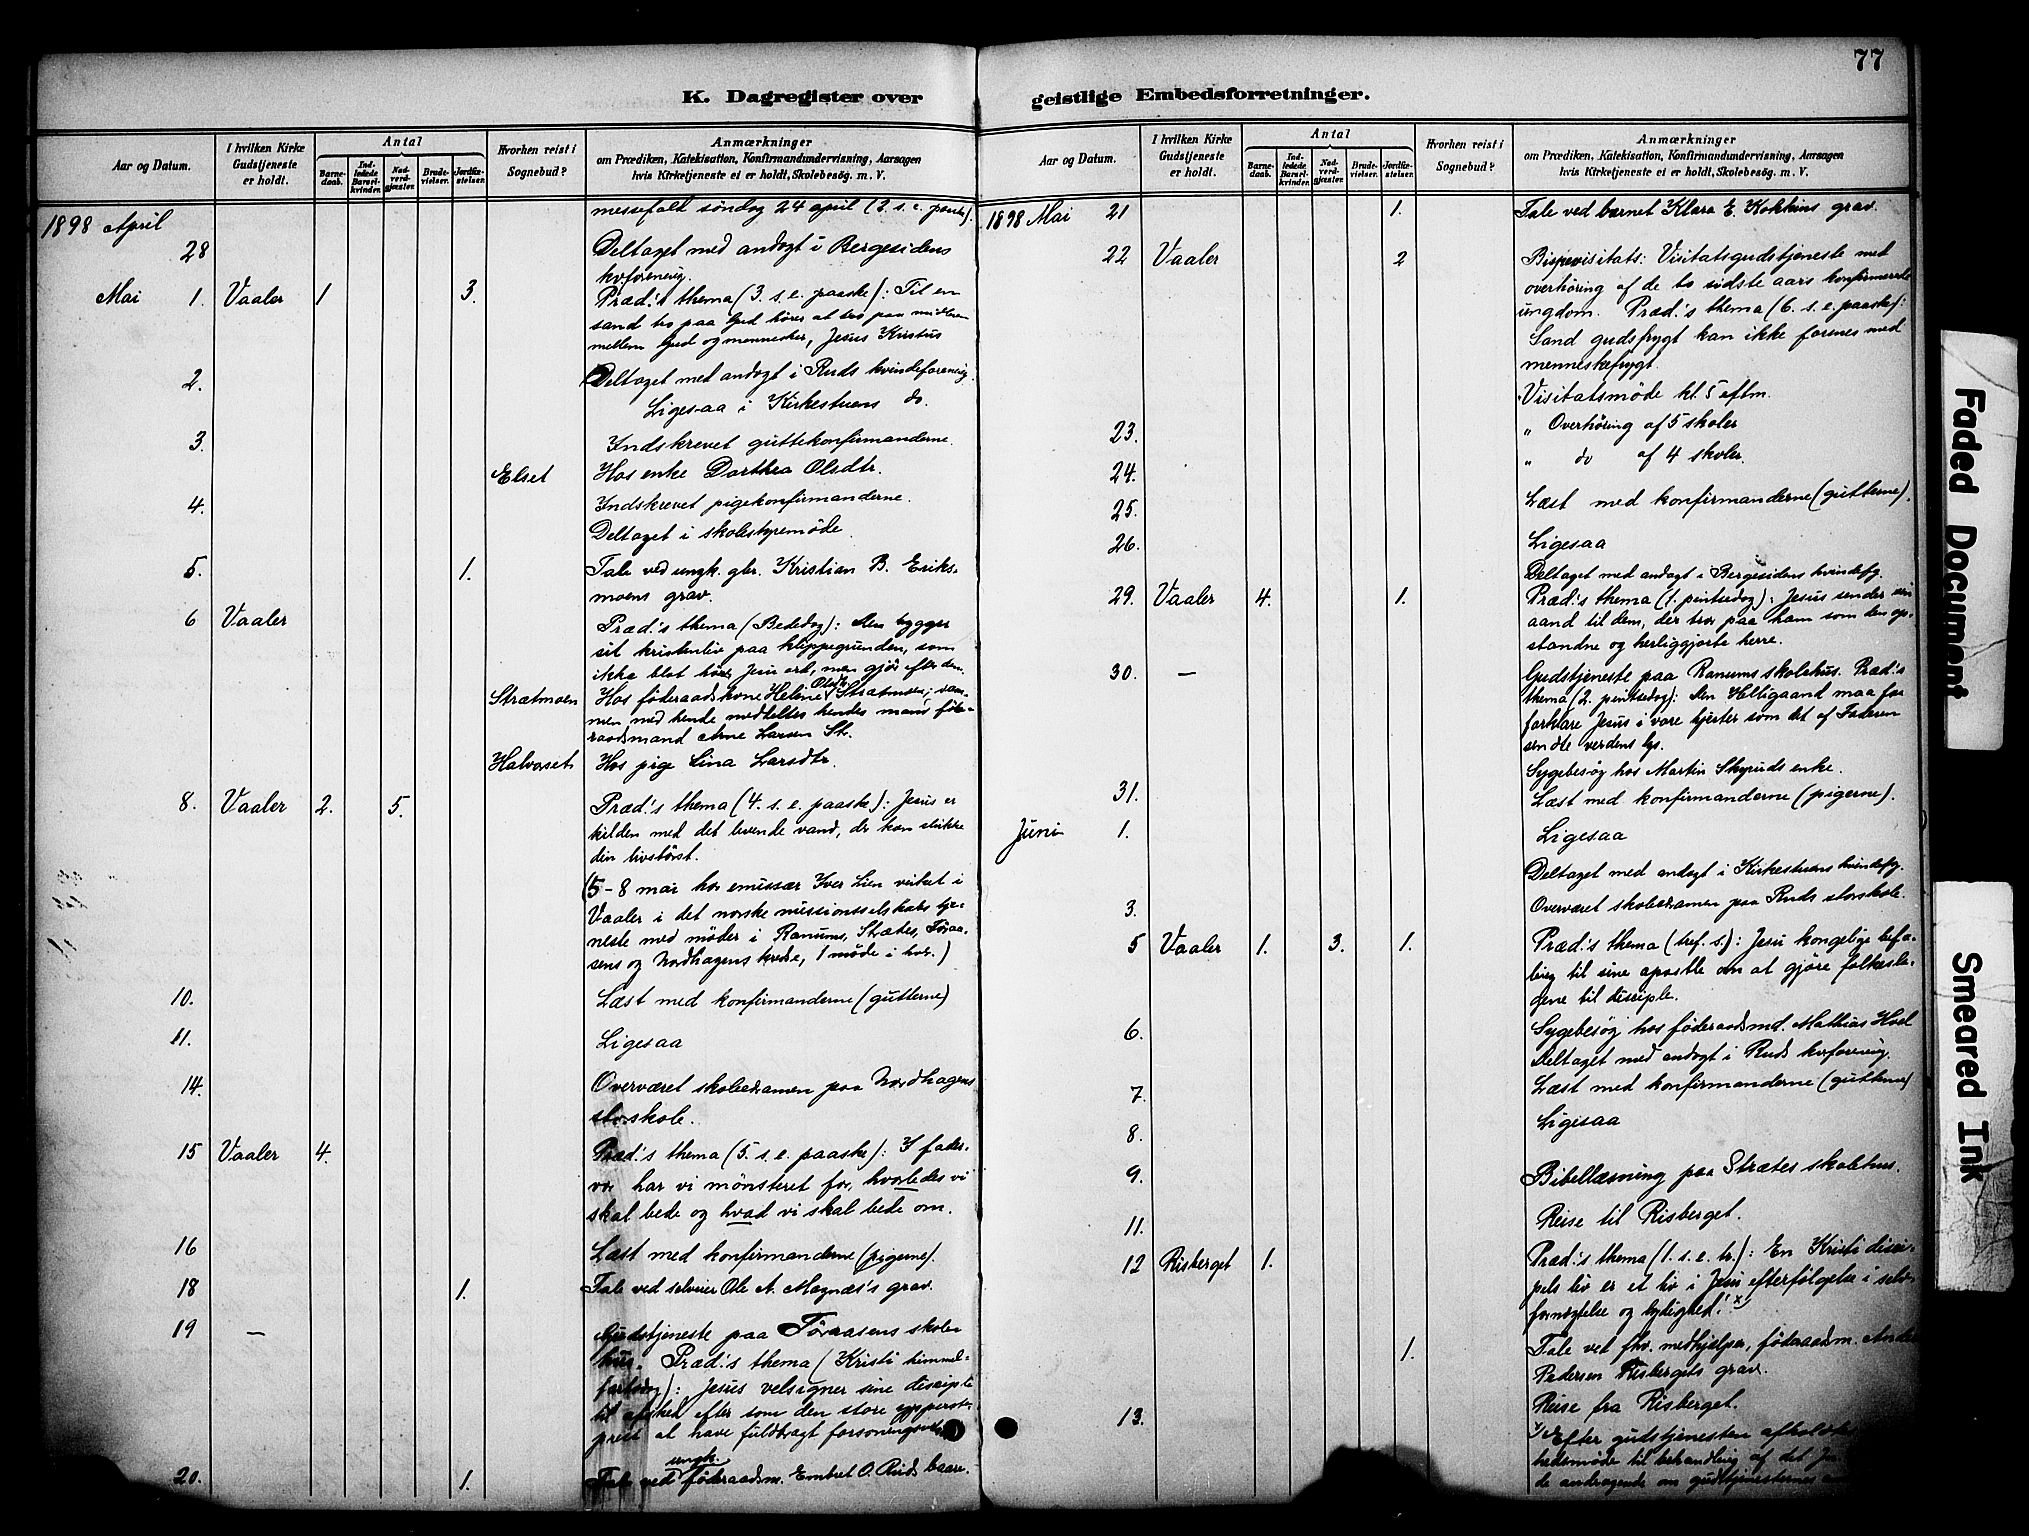 77
K. Dagregister over geistlige Embedsforretninger.
Aar og Datum.
I hvilken Kirke Gudstjeneste er holdt.
Antal
Barnedaab.
Indledede Barselkvinder.
Nadverdgjæster.
Brudevielser.
Jordfæstelser.
Hvorhen reist i Sognebud?
Anmærkninger
om Prædiken, Katekisation, Konfirmandundervisning, Aarsagen
hvis Kirketjeneste ei er holdt, Skolebesøg. m. V.
1898 April messefald søndag 24 april (2. s. e. paaske).
28 Deltaget med andagt i Bergesidens
kvforening.
Mai 1. Vaaler 1 3. Præd.'s thema (3. s. e. paaske): Til en
sand tro paa Gud hører at tro paa midleren
mellem Gud og mennesker, Jesus Kristus
2. Deltaget med andagt i Ruds kvindeforening.
Ligesaa i Kirkestuens do.
3. Indskrevet guttekonfirmanderne.
Elset Hos enke Dorthea Olsdtr.
4. Indskrevet pigekonfirmanderne.
Deltaget i skolestyremøde.
5. 1. Tale ved ungk. gbr. Kristian B. Eriks-
moens grav.
6 Vaaler Præd.'s thema (Bededag): Den bygger
sit kristenliv paa klippegrunden, som
ikke blot hører Jesu ord, men gjør efter dem.
Strætmoen Hos føderaadskone Heline Olsdtr. Strætmoen; sam-
men med hende meddeltes hendes mand føde-
raadsmand Arne Larsen Str.
Halvorset Hos pige Lina Larsdtr.
8. Vaaler 2. 5. Præd.'s thema (4. s. e. paaske): Jesus er
kilden med det levende vand, der kan slukke
din livstørst.
(5-8 mai har emissær Iver Lien virket i
Vaaler i det norske missionsselskabs tje-
neste med møder i Ranums, Strætes, Føraa-
sens og Nordhagens kredse, 1 møde i hver.)
10. Læst med konfirmanderne (gutterne)
11. Ligesaa
14. Overværet skoleexamen paa Nordhagens
storskole.
15 Vaaler 4. Præd.'s thema (5. s. e. paaske): I fader-
vor har vi mønsteret for, hvorledes vi
skal bede og hvad vi skal bede om.
16 Læst med konfirmanderne (pigerne).
18 1. Tale ved selveier Ole A. Magnæs's grav.
19 — Gudstjeneste paa Føraasens skole-
hus. Præd.'s thema (Kristi himmel-
fartsdag): Jesus velsigner sine disciple
til afsked efter som den store ypperste-
prest at have fuldbragt
20. 1. Tale ved ungk. føderaadsm. Embret O. Ruds baare.
1898 Mai 21 1. Tale ved barnet Klara E. Kokkins grav.
22 Vaaler 2 Bispevisitats: Visitatsgudstjeneste med
overhøring af de to sidste aars konfirmerede
ungdom. Præd.'s thema (6. s. e. paaske):
Sand gudsfrygt kan ikke forenes med
menneskefrygt.
Visitatsmøde kl. 5 eftm.
23. „ Overhøring af 5 skoler
24. „ do af 4 skoler.
25. Læst med konfirmanderne (gutterne).
26. Ligesaa
Deltaget med andagt i Bergesidens kvindefg.
29. Vaaler 4. 1. Præd.'s thema (1. pintsedag): Jesus sender sin
aand til dem, der tror paa ham som den op-
standne og herliggjorte herre.
30. — Gudstjeneste paa Ranums skolehus. Præd.'s
thema (2. pintsedag): Den Helligaand maa for
forklare Jesus i vore hjerter som det af Faderen
sendte verdens lys.
Sygebesøg hos Martin Skyruds enke.
31. Læst med konfirmanderne (pigerne).
Juni 1. Ligesaa
Deltaget med andagt i Kirkestuens kvindefg.
3. Overværet skoleexamen paa Ruds storskole.
5 Vaaler 1. 3. 1. Præd.'s thema (tref. s.): Jesu kongelige befa-
ling til sine apostle om at gjøre folkesla-
gene til disciple.
6. Sygebesøg hos føderaadsmd. Mathias Hoel
Deltaget med andagt i Ruds kvforening.
7. Læst med konfirmanderne (gutterne)
8. Ligesaa
9. Bibellæsning paa Strætes skolehus.
11. Reise til Risberget.
12 Risberget 1. Præd.'s thema (1. s. e. tr.): En Kristi disci-
pels liv er et liv i Jesu efterfølgelse i selv-
fornægtelse og lydighed! x)
1. Tale ved fhv. medhjelper, føderaadm. Anders
Pedersen Risbergets grav.
13. Reise fra Risberget.
x) Efter gudstjenesten afholdtes
hedsmøde til behandling af det
de andragende om gudstjenesternes
Faded Document
Smeared Ink